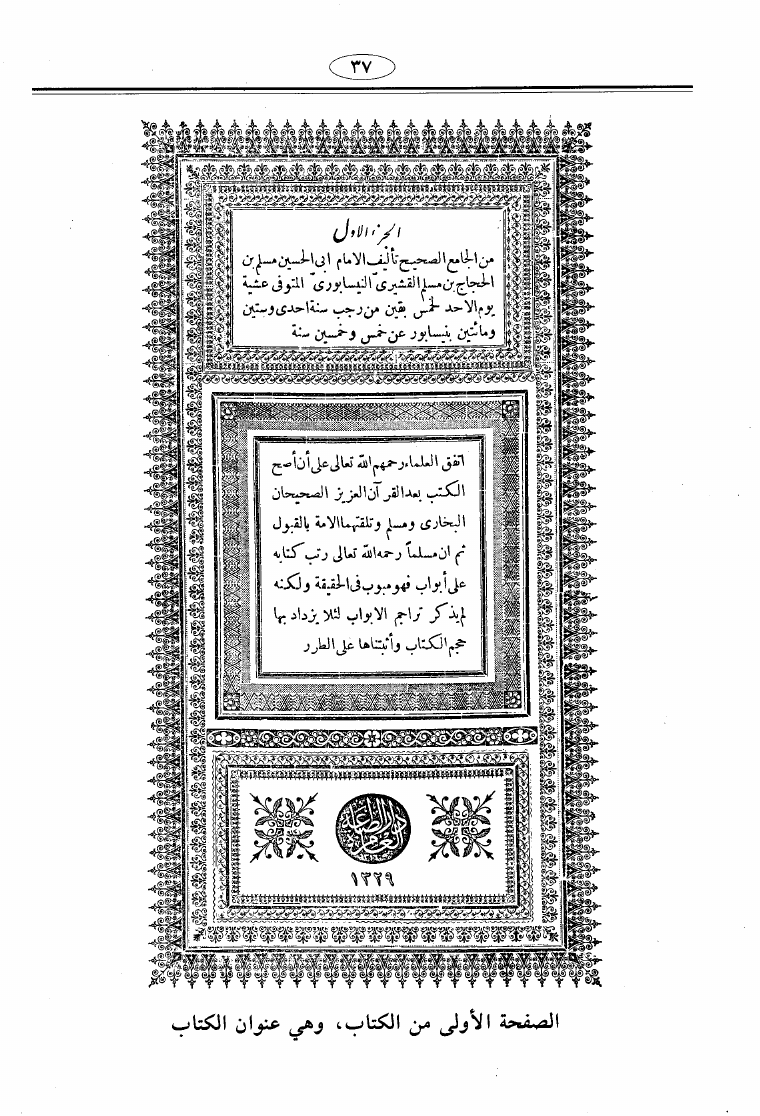 ٣٧
الجزء الاول
من الجامع الصحيح تأليف الامام ابى الحسين مسلم بن
الحجاج بن مسلم القشيرى النيسابورى المتوفى عشية
يوم الاحد لخمس بقين من رجب سنة احدى وستين
ومائتين بنيسابور عن خمس وخمسين سنة
اتفق العلماء رحمهم الله تعالى على أن أصح
الكتب بعد القرآن العزيز الصحيحان
البخارى ومسلم وتلقتهما الامة بالقبول
ثم ان مسلماً رحمه الله تعالى رتب كتابه
على أبواب فهو مبوب فى الحقيقة ولكنه
لم يذكر تراجم الابواب لئلا يزداد بها
حجم الكتاب وأثبتناها على الطرر
دار الطباعة العامرة
١٣٢٩
الصفحة الأولى من الكتاب، وهي عنوان الكتاب